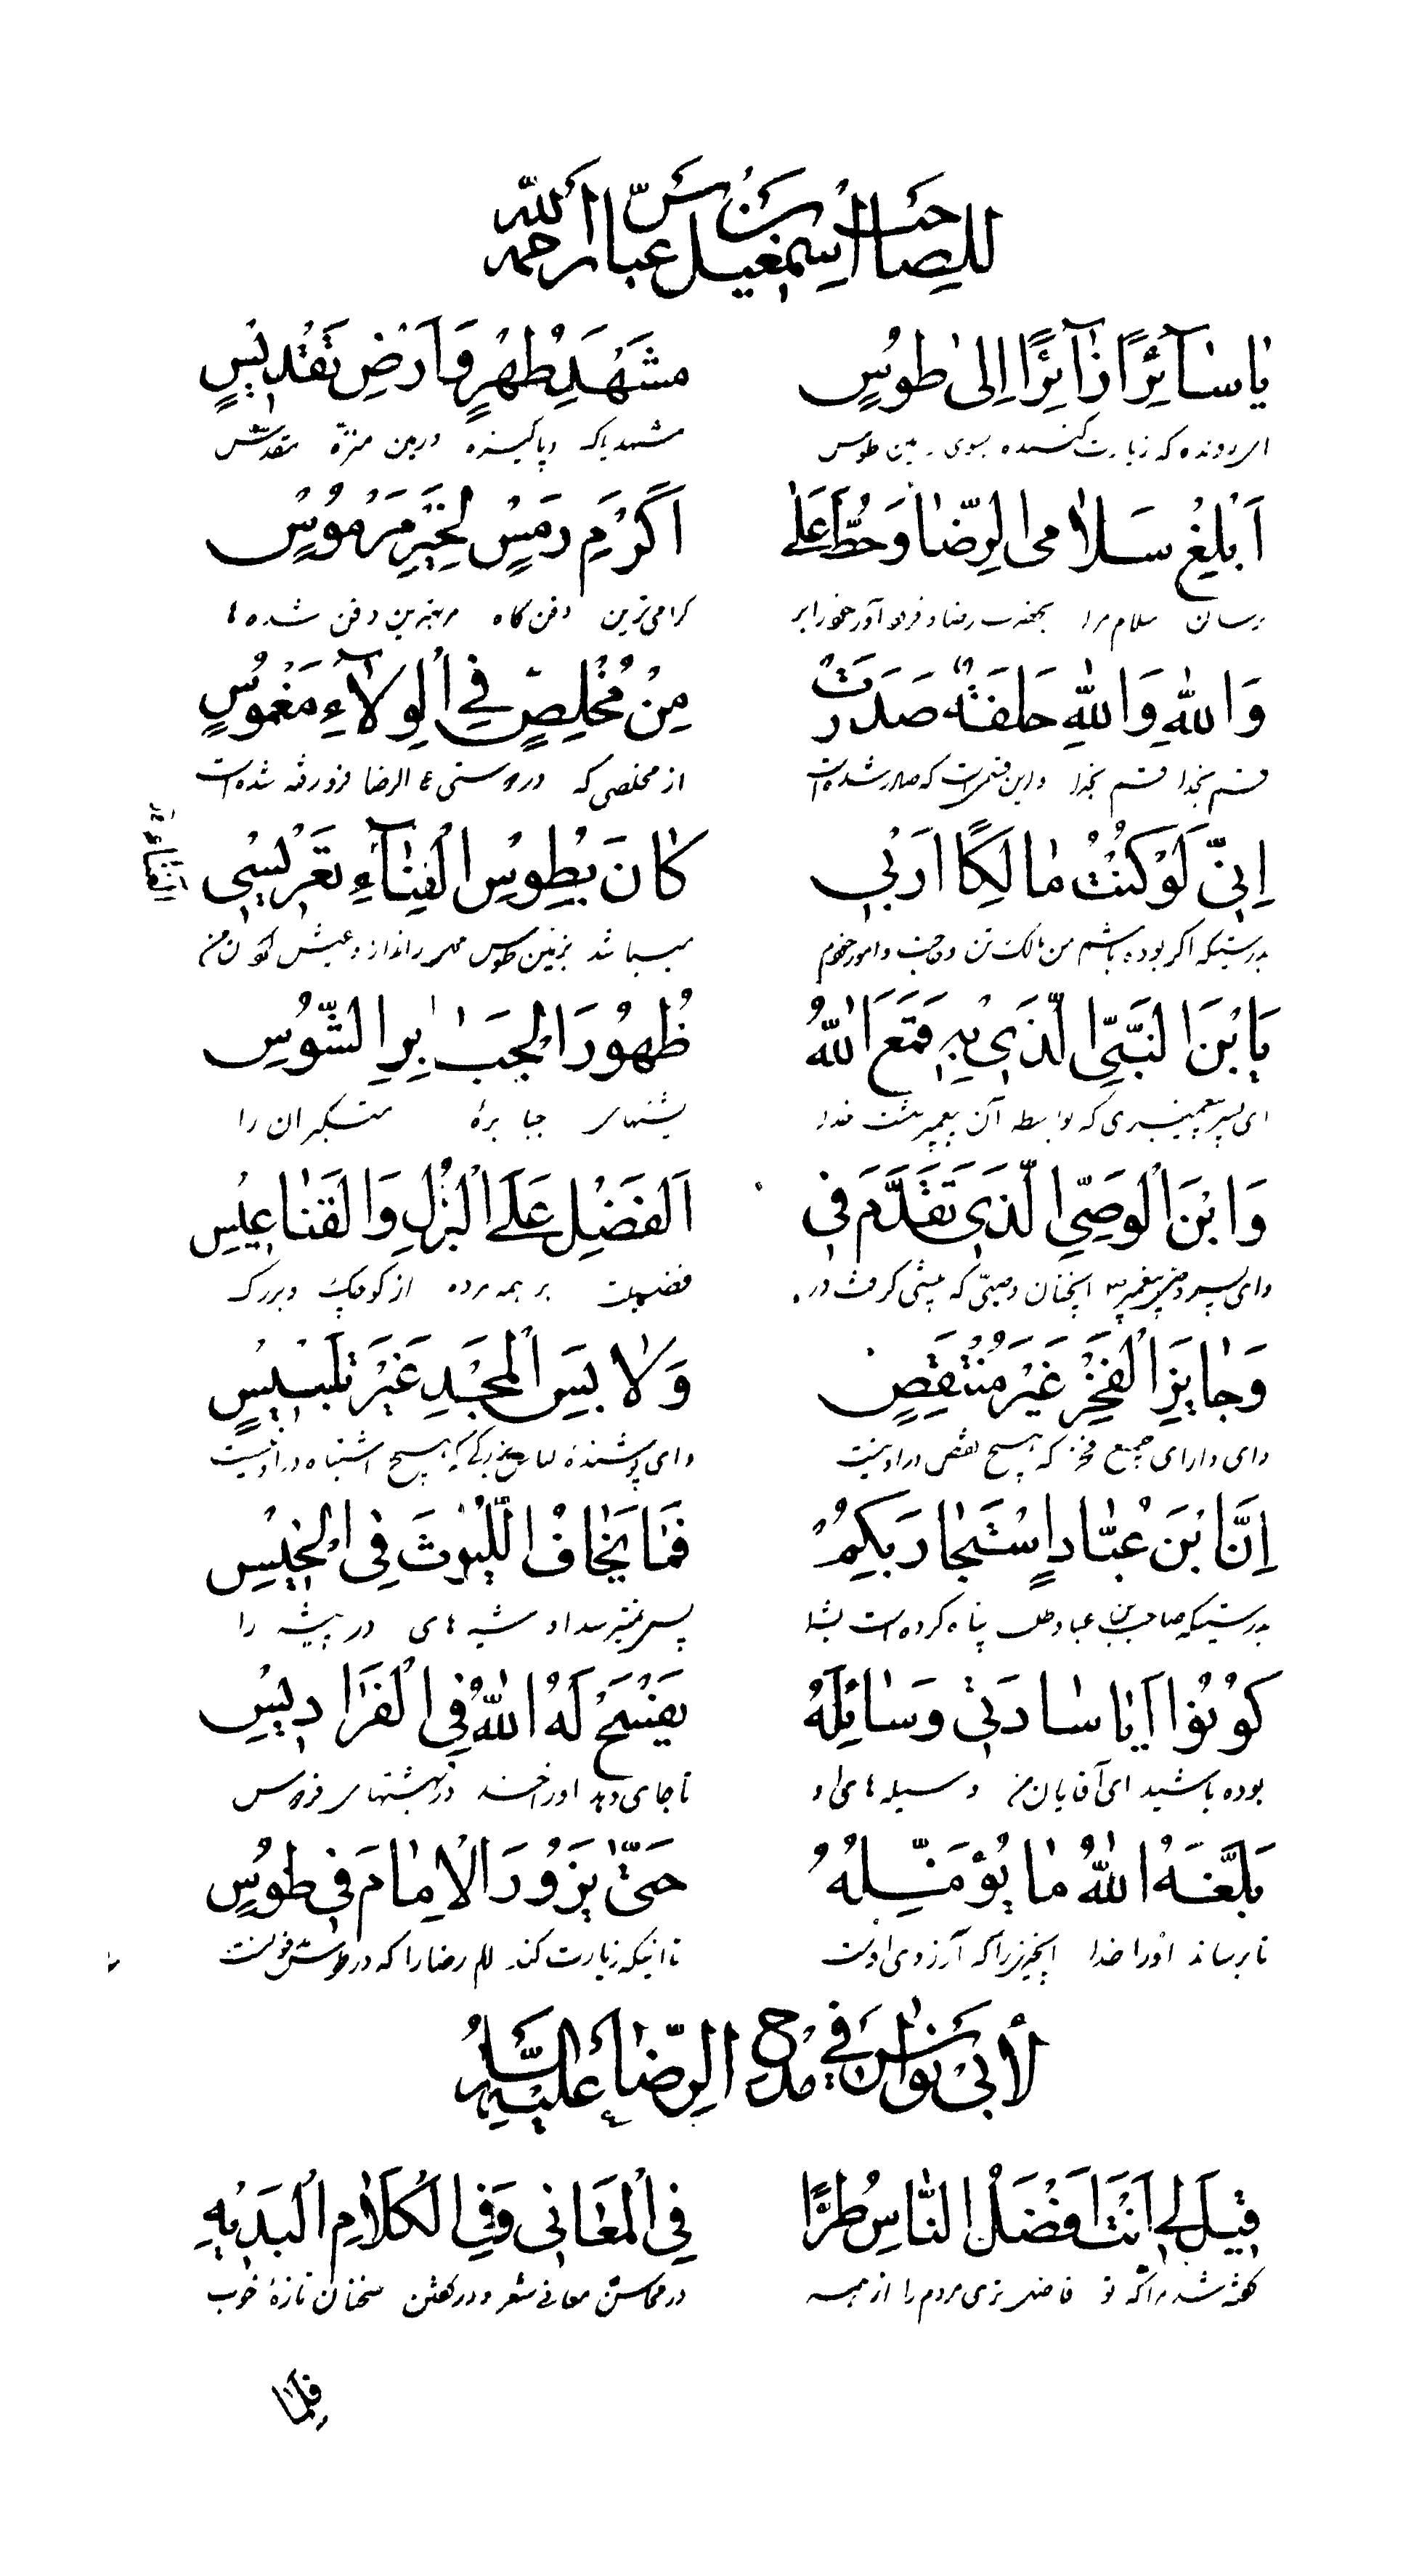 للصاحب اسمعیل بن عباس رحمه الله
یٰا سٰآئِرًا زٰآئِرًا اِلیٰ طُوسٍ مَشْهَدِ طُهْرٍ وَ اَرْضِ تَقْدیسٍ
ای رونده که زیارت کننده بسوی زمین طوس مشهد پاک و پاکیزه و زمین منزه مقدس
اَبْلِغْ سَلاٰمی الرِّضٰا وَحُطَّ عَلیٰ اَکْرَمِ رَمْسٍ لِخَیْرِ مَرْمُوسٍ
برسان سلام مرا بحضرت رضا و فرود آور خود را بر گرامی‌ترین دفن گاه بهترین دفن شده ها
وَاللّٰهِ وَاللّٰهِ حَلفَةً صَدَرَتْ مِنْ مُخْلِصٍ فِی الْوِلاٰءِ مَغْمُوسٍ
قسم بخدا قسم بخدا و این قسمی است که صادر شده است از مخلصی که در دوستی ع الرضا فرو رفته شده است
اِنّی لَوْ کُنْتُ مٰالِکًا اَرَبی کٰانَ بِطُوسِ الْفِنٰآءِ تَعْریسی
بدرستیکه اگر بوده باشم من مالک و امور خودم میباشد بزمین طوس
یَا بْنَ النَّبِیِّ الَّذی بِهِ قَمَعَ اللّٰهُ ظُهُورَ الْجَبٰابِرِ الشُّوسِ
ای پسر پیغمبری که بواسطه آن پیغمبر خدا پشتهای جبابرهٔ متکبران را
وَابْنَ الْوَصِیِّ الَّذی تَقَدَّمَ فِی الْفَضْلِ عَلَی الْبُزْلِ وَالْقَنٰاعیسِ
وای پسر وصی پیغمبر آنچنان وصیی که پیشی گرفت در فضیلت بر همه مردم از کوچک و بزرگ
وَحٰایِزَ الْفَخْرِ غَیْرَ مُنْتَقِصٍ وَلاٰبِسَ الْمَجْدِ غَیْرَ تَلْبیسٍ
وای دارای جمیع فخر که هیچ نقص در او نیست وای پوشندهٔ لباس بزرگی که هیچ اشتباه در او نیست
اِنَّ ابْنَ عَبّٰادٍ اسْتَجٰارَ بِکُمْ فَمٰا یَخٰافُ اللُّیُوثَ فِی الْخیسِ
بدرستیکه صاحب بن عباد طلب پناه کرده است بشما پس نمیترسد او شیرهای در بیشه را
کُونُوا اَیٰا سٰادَتی وَسٰائِلَهُ یَفْسَحْ لَهُ اللّٰهُ فِی الْفَرٰادیسِ
بوده باشید ای آقایان من وسیله های او تا جای دهد او را خدا در بهشتهای فردوس
بَلَّغَهُ اللّٰهُ مٰا یُؤَمِّلُهُ حَتّٰی یَزُورَ الْاِمٰامَ فی طُوسٍ
تا برساند او را خدا آنچیزرا که آرزوی اوست تا اینکه زیارت کند امام رضا را که در طوس مدفونست
لأبی نواس فی مدح الرضا علیه السلام
قیلَ لی اَنْتَ اَفْضَلُ النّٰاسِ طُرًّا فِی الْمَعٰانی وَفِی الْکَلاٰمِ الْبَدیهِ
گفته شد مرا که تو فاضلتری مردم را از همه در محاسن معانی شعر و در گفتن سخنان تازهٔ خوب
فَلَمّٰا